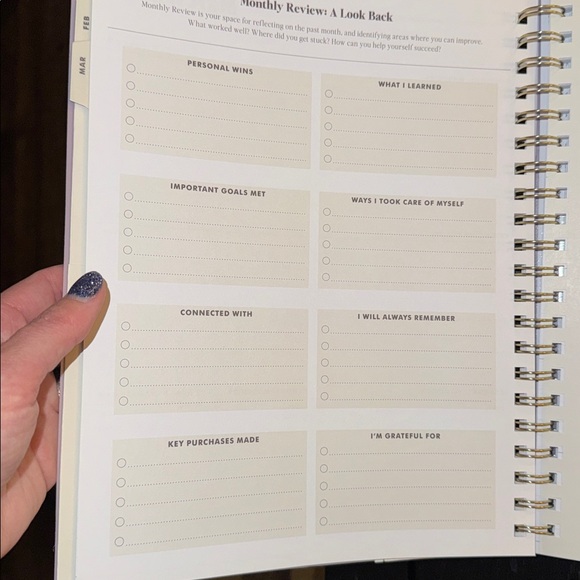 Monthly Review: A Look Back
Monthly Review is your space for reflecting on the past month, and identifying areas where you can improve.
What worked well? Where did you get stuck? How can you help yourself succeed?
FEB
MAR
PERSONAL WINS
WHAT I LEARNED
IMPORTANT GOALS MET
WAYS I TOOK CARE OF MYSELF
CONNECTED WITH
I WILL ALWAYS REMEMBER
KEY PURCHASES MADE
I'M GRATEFUL FOR